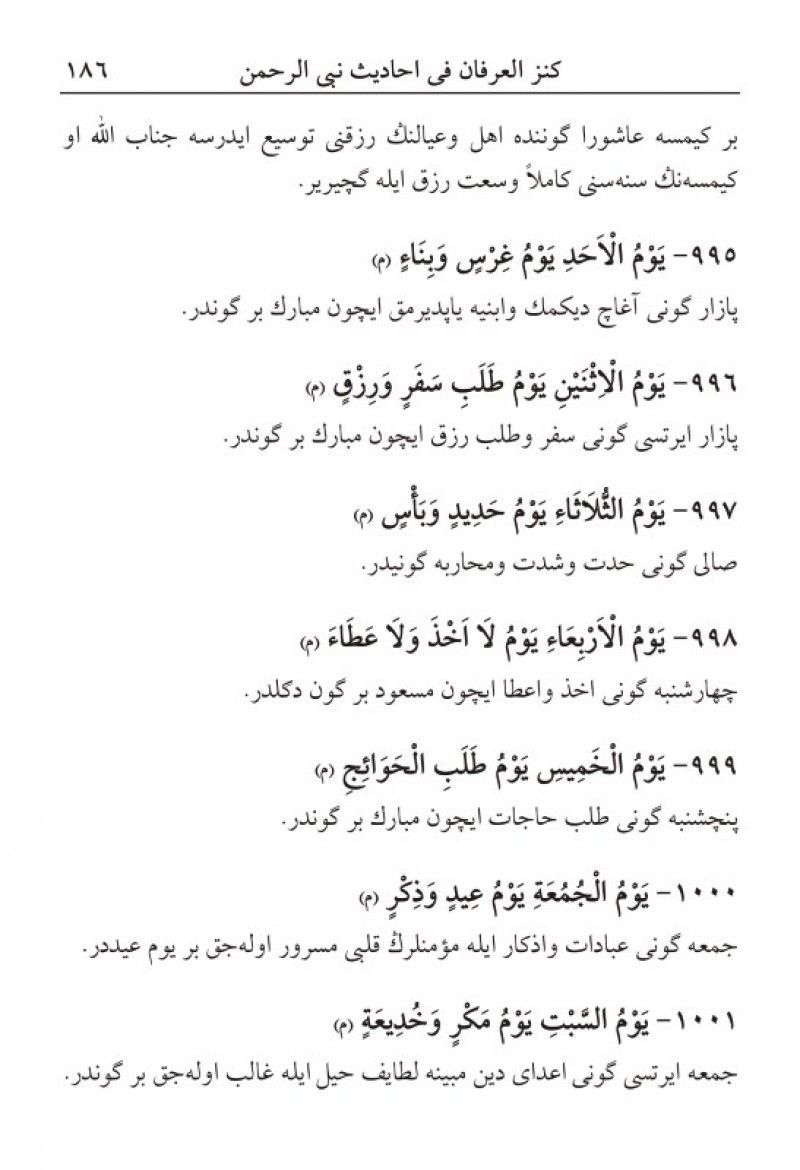 كنز العرفان فى احاديث نبى الرحمن ١٨٦
بر كيمسه عاشورا گوننده اهل وعيالنڭ رزقنى توسيع ايدرسه جناب الله او
كيمسه‌نڭ سنه‌سنى كاملاً وسعت رزق ايله گچيرير.
٩٩٥- يَوْمُ الْاَحَدِ يَوْمُ غِرْسٍ وَبِنَاءٍ (م)
پازار گونى آغاچ ديكمك وابنيه ياپديرمق ايچون مبارك بر گوندر.
٩٩٦- يَوْمُ الْاِثْنَيْنِ يَوْمُ طَلَبِ سَفَرٍ وَرِزْقٍ (م)
پازار ايرتسى گونى سفر وطلب رزق ايچون مبارك بر گوندر.
٩٩٧- يَوْمُ الثُّلَاثَاءِ يَوْمُ حَدِيدٍ وَبَأْسٍ (م)
صالى گونى حدت وشدت ومحاربه گونيدر.
٩٩٨- يَوْمُ الْاَرْبِعَاءِ يَوْمُ لَا اَخْذَ وَلَا عَطَاءَ (م)
چهارشنبه گونى اخذ واعطا ايچون مسعود بر گون دگلدر.
٩٩٩- يَوْمُ الْخَمِيسِ يَوْمُ طَلَبِ الْحَوَائِجِ (م)
پنچشنبه گونى طلب حاجات ايچون مبارك بر گوندر.
١٠٠٠- يَوْمُ الْجُمُعَةِ يَوْمُ عِيدٍ وَذِكْرٍ (م)
جمعه گونى عبادات واذكار ايله مؤمنلرڭ قلبى مسرور اوله‌جق بر يوم عيددر.
١٠٠١- يَوْمُ السَّبْتِ يَوْمُ مَكْرٍ وَخُدِيعَةٍ (م)
جمعه ايرتسى گونى اعداى دين مبينه لطايف حيل ايله غالب اوله‌جق بر گوندر.